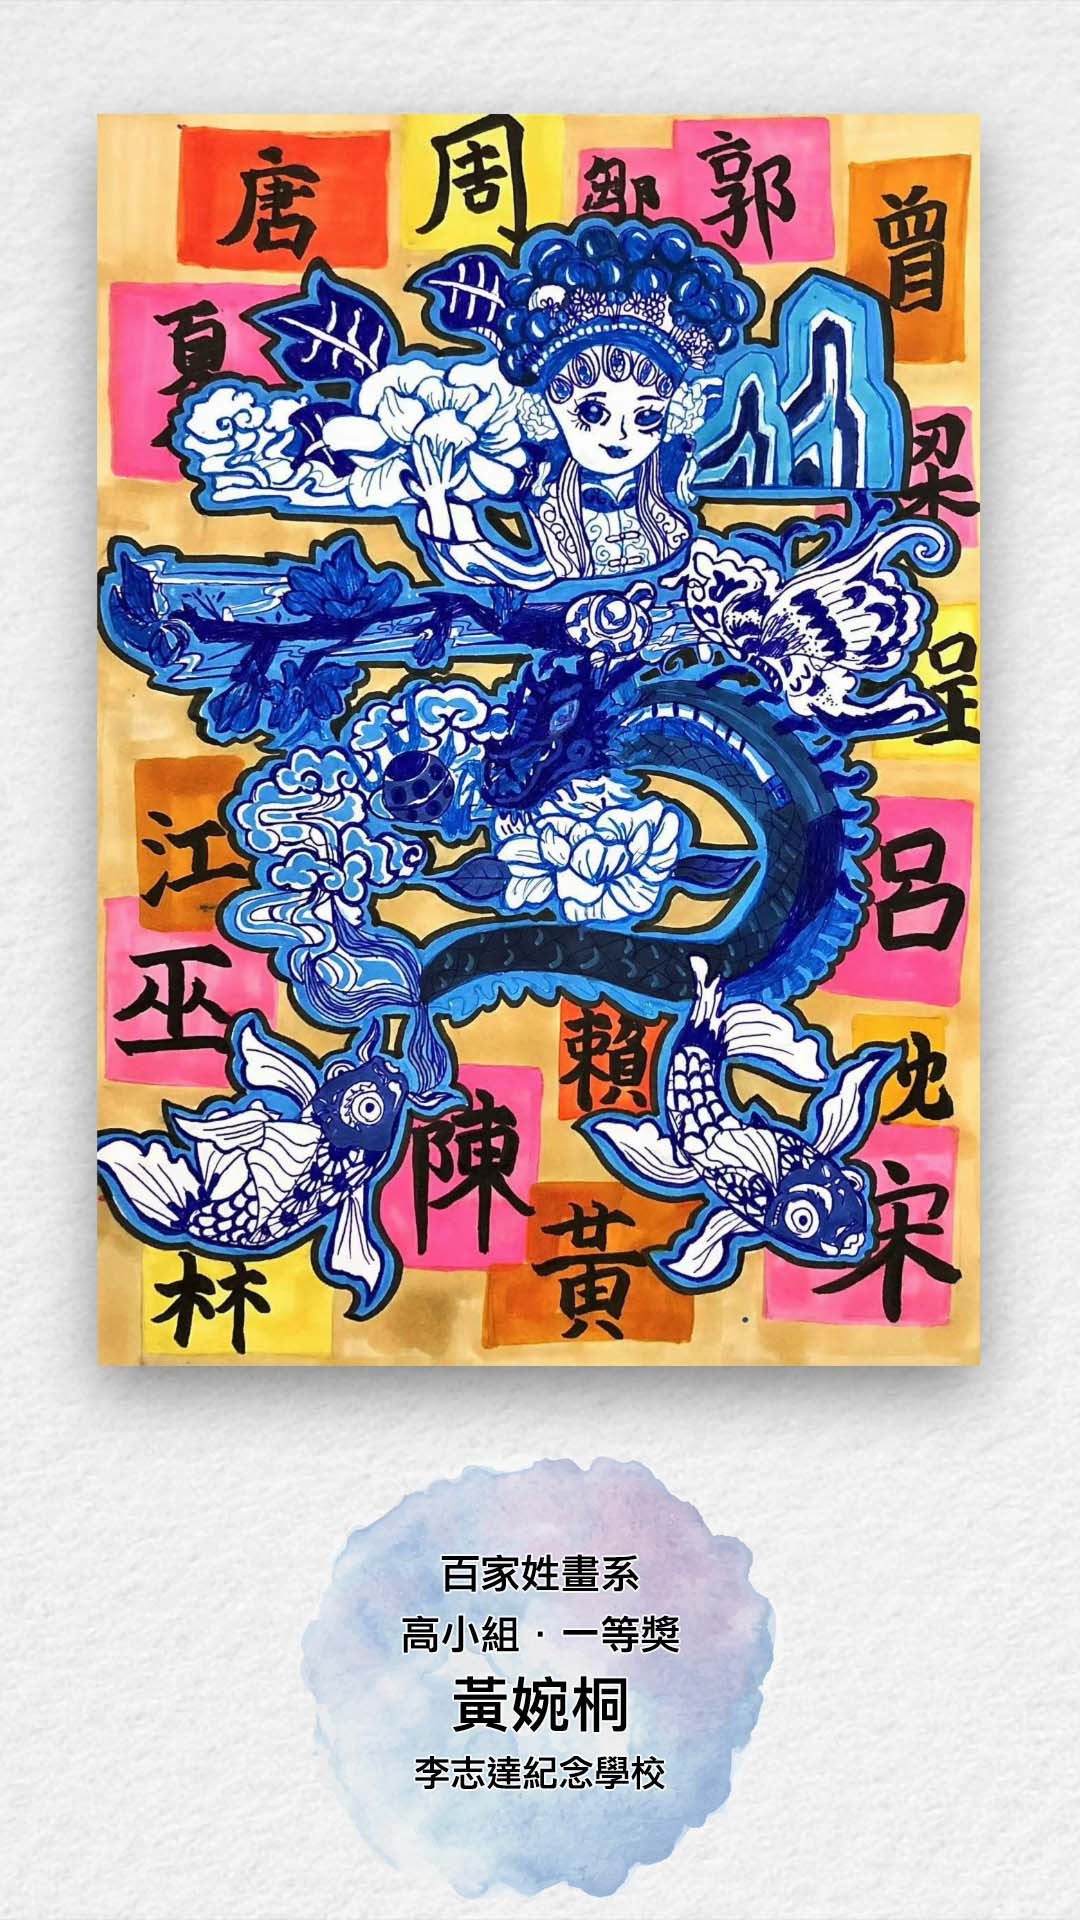 唐
周
鄒
郭
曾
夏
梁
江
呂
巫
賴
沈
陳
宋
黃
林
百家姓畫系
高小組．一等獎
黃婉桐
李志達紀念學校